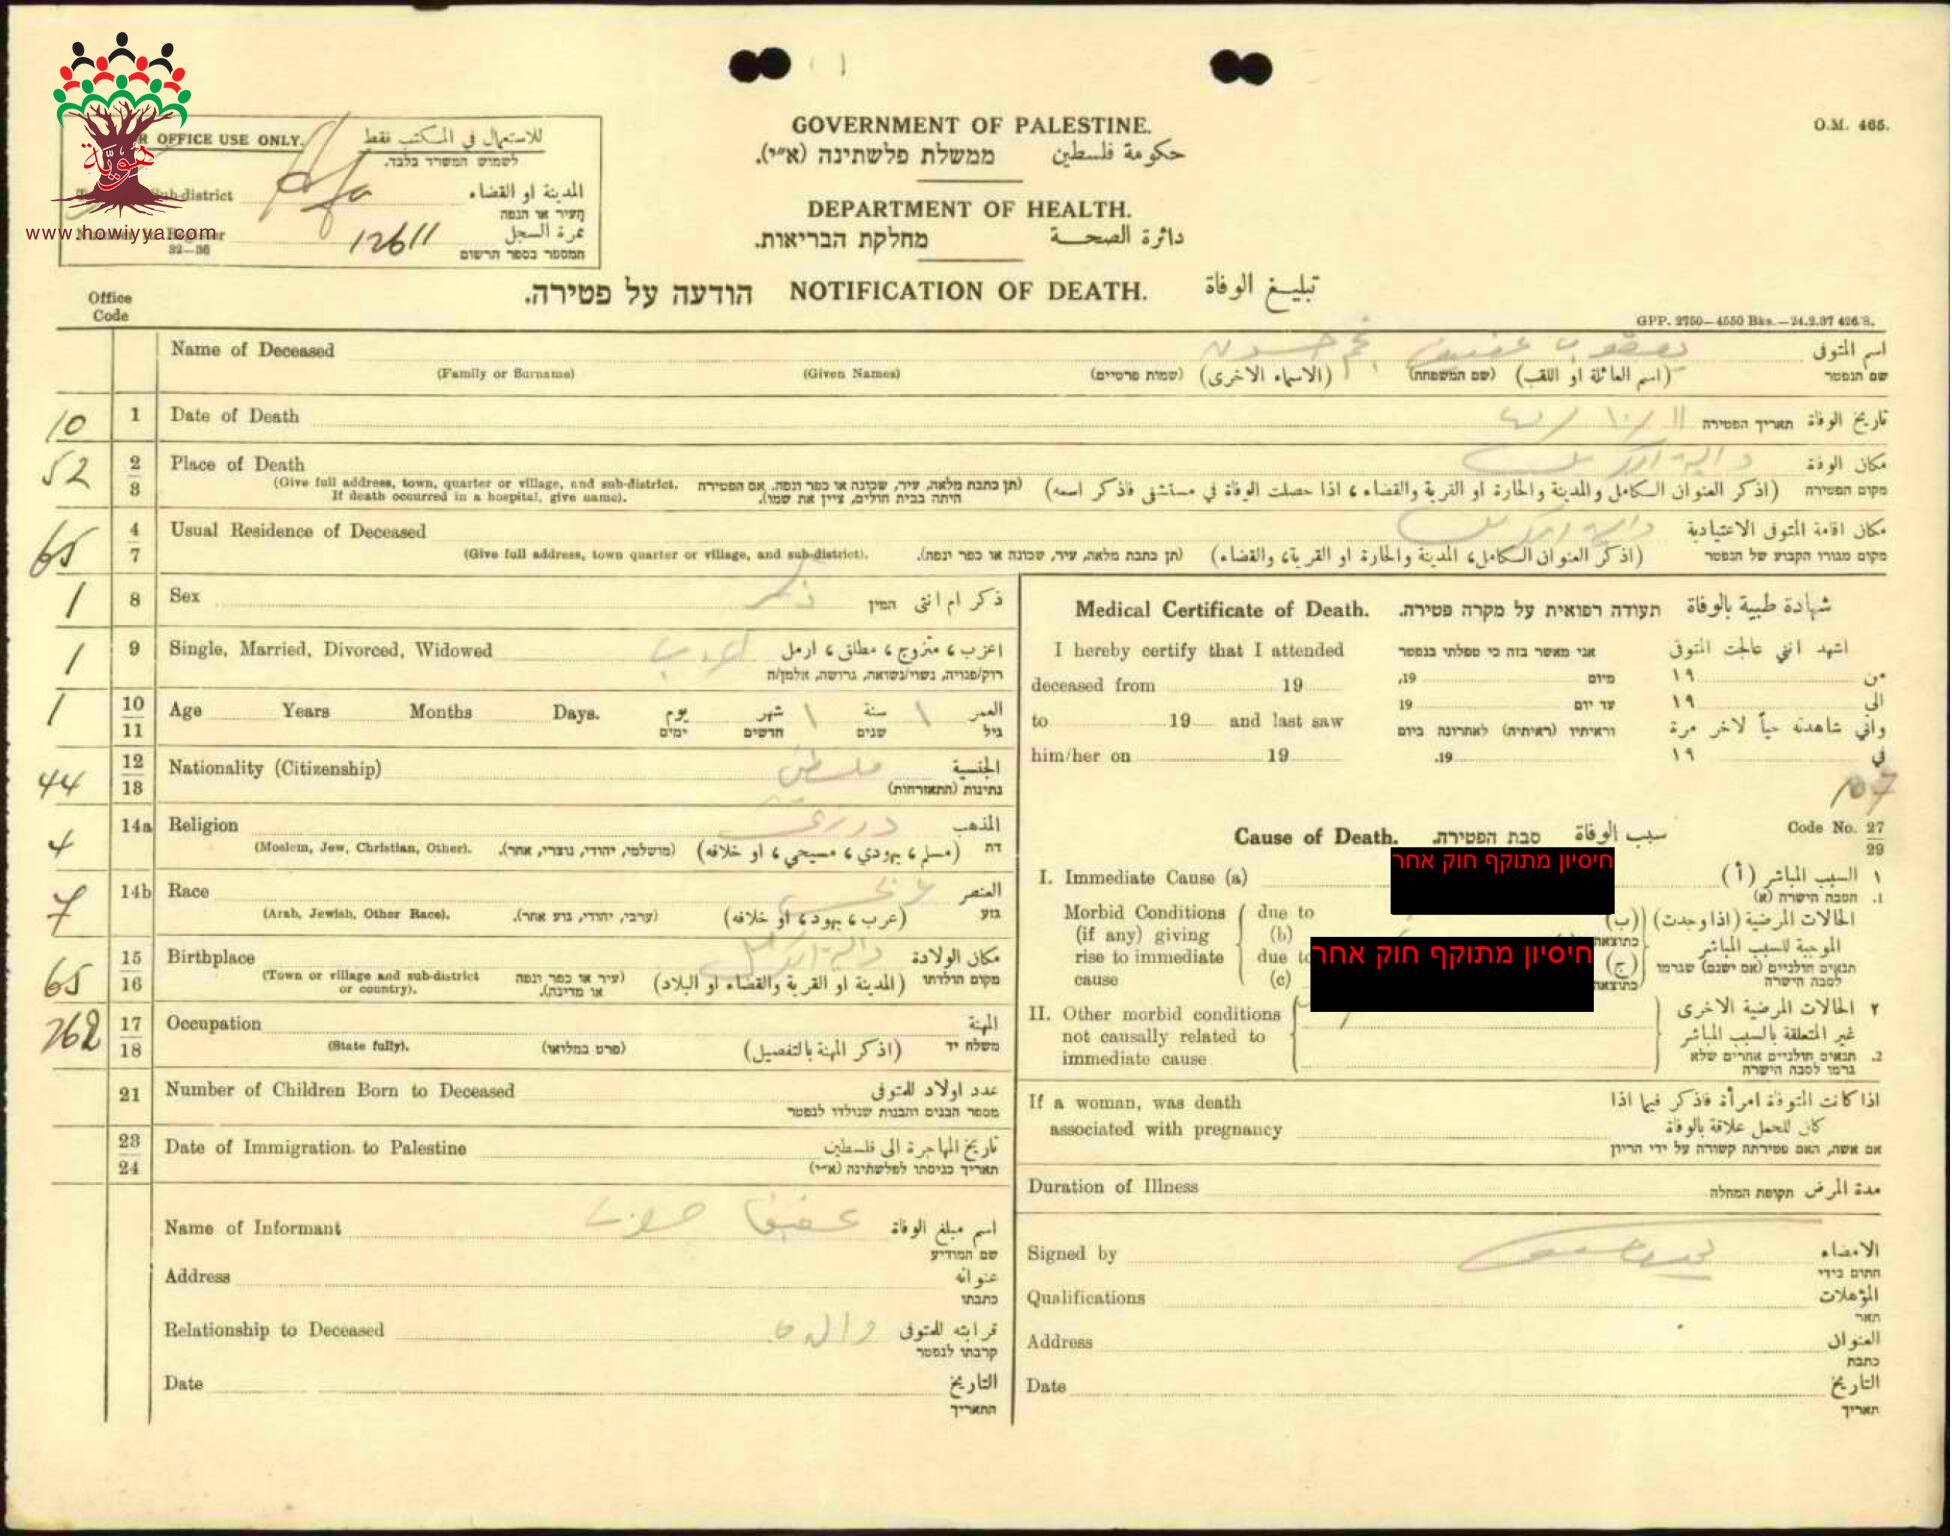 هوية
www.howiyya.com
O.M. 465.
FOR OFFICE USE ONLY. للاستعمال في المكتب فقط
לשמוש המשרד בלבד.
Sub-district المدينة او القضاء
העיר או הנפה
Number in Register 12611 نمرة السجل
32—36 המספר בספר הרשום
GOVERNMENT OF PALESTINE.
ממשלת פלשתינה (א״י). حكومة فلسطين
DEPARTMENT OF HEALTH.
מחלקת הבריאות. دائرة الصحة
הודעה על פטירה. NOTIFICATION OF DEATH. تبليغ الوفاة
GPP. 2750—4550 Bks.—24.2.37 426/S.
Office
Code
Name of Deceased يعقوب عفيف اسم المتوفى
(Family or Surname) (Given Names) (שמות פרטיים) (الاسماء الاخرى) (שם המשפחה) (اسم العائلة او اللقب) שם הנפטר
10 1 Date of Death תאריך הפטירה تاريخ الوفاة
52 2 Place of Death دالية الكرمل مكان الوفاة
3 (Give full address, town, quarter or village, and sub-district. (תן כתבת מלאה, עיר, שכונה או כפר ונפה. אם הפטירה (اذكر العنوان الكامل والمدينة والحارة او القرية والقضاء، اذا حصلت الوفاة في مستشفى فاذكر اسمه) מקום הפטירה
If death occurred in a hospital, give name). היתה בבית חולים, ציין את שמו).
65 4 Usual Residence of Deceased دالية الكرمل مكان اقامة المتوفى الاعتيادية
7 (Give full address, town quarter or village, and sub-district). (תן כתבת מלאה, עיר, שכונה או כפר ונפה). (اذكر العنوان الكامل، المدينة والحارة او القرية، والقضاء) מקום מגורו הקבוע של הנפטר
1 8 Sex ذكر המין ذكر ام انثى
1 9 Single, Married, Divorced, Widowed اعزب اعزب، متزوج، مطلق، ارمل
רוק/פנויה, נשוי/נשואה, גרושה, אלמן/ה
1 10 Age Years Months Days. يوم شهر ١ سنة ١ العمر
11 ימים חדשים שנים גיל
44 12 Nationality (Citizenship) فلسطيني الجنسية
13 נתינות (התאזרחות)
4 14a Religion درزي المذهب
(Moslem, Jew, Christian, Other). (מושלמי, יהודי, נוצרי, אחר). (مسلم، يهودي، مسيحي، او خلافه) דת
7 14b Race عربي العنصر
(Arab, Jewish, Other Race). (ערבי, יהודי, גזע אחר). (عرب، يهود، او خلافه) גזע
65 15 Birthplace دالية الكرمل مكان الولادة
16 (Town or village and sub-district (עיר או כפר ונפה (المدينة او القرية والقضاء او البلاد) מקום הולדתו
or country). או מדינה).
762 17 Occupation المهنة
18 (State fully). (פרט במלואו) (اذكر المهنة بالتفصيل) משלח יד
21 Number of Children Born to Deceased عدد اولاد للمتوفى
מספר הבנים והבנות שנולדו לנפטר
23 Date of Immigration to Palestine تاريخ المهاجرة الى فلسطين
24 תאריך כניסתו לפלשתינה (א״י)
Name of Informant عفيف اسم مبلغ الوفاة
שם המודיע
Address عنوانه
כתבתו
Relationship to Deceased والده قرابته للمتوفى
קרבתו לנפטר
Date التاريخ
התאריך
Medical Certificate of Death. תעודה רפואית על מקרה פטירה. شهادة طبية بالوفاة
I hereby certify that I attended אני מאשר בזה כי טפלתי בנפטר اشهد انني عالجت المتوفى
deceased from 19 מיום 19, من ١٩
to 19 and last saw עד יום 19 الى ١٩
וראיתיו (ראיתיה) לאחרונה ביום واني شاهدته حياً لآخر مرة
him/her on 19 19. في ١٩
107
Cause of Death. סבת הפטירה. سبب الوفاة Code No. 27
29
חיסיון מתוקף חוק אחר
I. Immediate Cause (a) السبب المباشر (أ) ١
הסבה הישרה (א) 1.
Morbid Conditions due to الحالات المرضية (اذا وجدت) (ب)
(if any) giving (b) כתוצאה الموجبة للسبب المباشر
חיסיון מתוקף חוק אחר
rise to immediate due to תנאים חולניים (אם ישנם) שגרמו (ج)
cause (c) כתוצאה לסבה הישרה
II. Other morbid conditions الحالات المرضية الاخرى ٢
not causally related to غير المتعلقة بالسبب المباشر
immediate cause תנאים חולניים אחרים שלא 2.
גרמו לסבה הישרה
If a woman, was death اذا كانت المتوفاة امرأة فاذكر فيما اذا
associated with pregnancy كان للحمل علاقة بالوفاة
אם אשה, האם פטירתה קשורה על ידי הריון
Duration of Illness תקופת המחלה مدة المرض
Signed by الامضاء
חתום בידי
Qualifications المؤهلات
תאר
Address العنوان
כתבת
Date التاريخ
תאריך